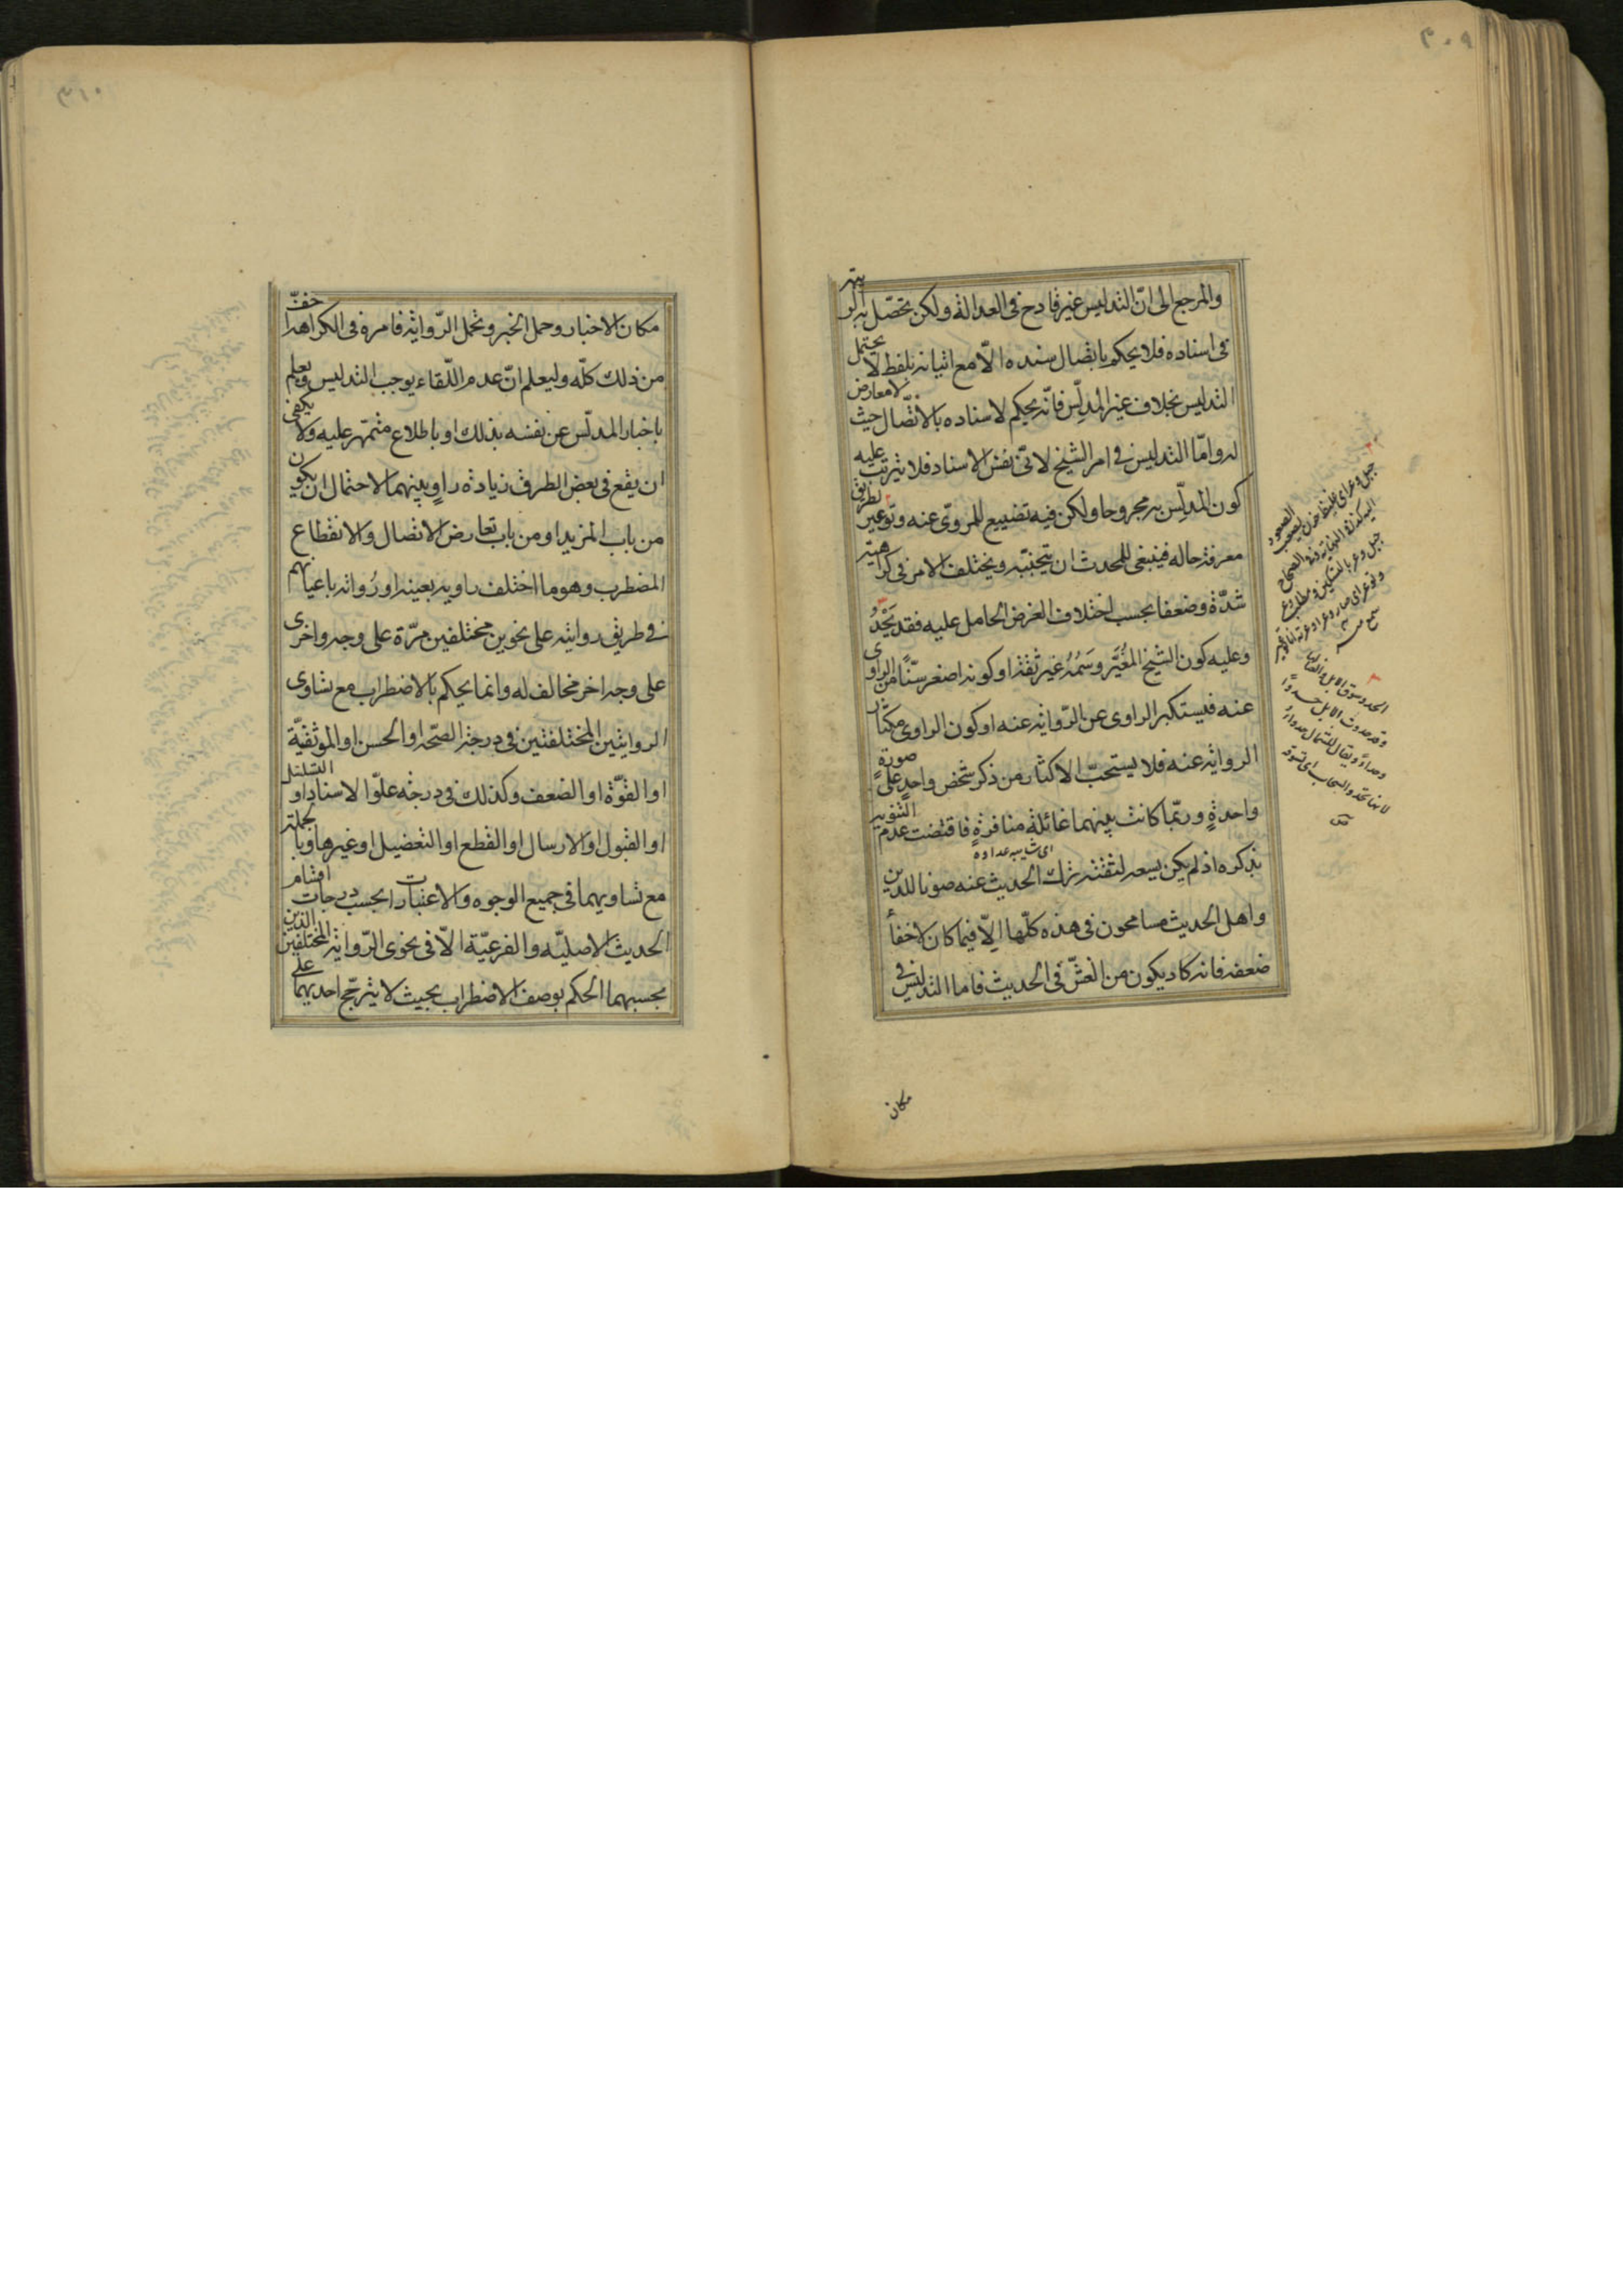 ٣٠٩
والمرجع الى انّ التدليس غير قادح فى العدالة ولكن تحصّل به الريبة
فى اسناده فلا يحكم باتصال سنده الّا مع اتيانه بلفظ لا يحتمل
التدليس بخلاف غير المدلّس فانّه يحكم لاسناده بالاتّصال حيث لا معارض
له وامّا التدليس فى امر الشيخ لا فى نفس الاسناد فلا يترتب عليه
كون المدلّس به مجروحا ولكن فيه تضييع للمروىّ عنه وتوعير لطريق
معرفة حاله فينبغى للمحدث ان يتجنّبه ويختلف الامر فى كراهيته
شدّة وضعفا بحسب اختلاف الغرض الحامل عليه فقد يَحْدُ
وعليه كون الشيخ المُغَيَّر وسَمُهُ غير ثقة او كونه اصغر سنّاً من الراوى
عنه فيستكبر الراوى عن الرّواية عنه او كون الراوى مكثار
الرواية عنه فلا يستحبّ الاكثار من ذكر شخص واحد على صورةٍ
واحدةٍ وربّما كانت بينهما غائلة منافرةٍ فاقتضت عدم التنويه
اى شايبه عداوة
بذكره اذ لم يكن يسعه لثقته ترك الحديث عنه صونا للدين
واهل الحديث مسامحون فى هذه كلّها الّا فيما كان لاخفاء
ضعفه فانه كاد يكون من الغشّ فى الحديث فاما التدليس فى
مكان
جبل وعر اى غليظ حزن يصعب الصعود
اليه كذا فى النهاية وفى الصحاح
جبل وعر بالتسكين ومطلب وعر
الحدو سوق الابل والغناء لها
وقد حدوت الابل حدوًا
وحداءً ويقال للشمال حدواءُ
لانها تحدو السحاب اى تسوقه
٣١٠
مكان الاخبار وحمل الخبر وتحمل الرّواية فامره فى الكراهة اخفّ
من ذلك كلّه وليعلم انّ عدم اللّقاء يوجب التدليس ويعلم
باخبار المدلّس عن نفسه بذلك او باطلاع متمهّر عليه ولا يكفى
ان يقع فى بعض الطرق زيادة راوٍ بينهما لاحتمال ان يكون
من باب المزيد او من باب تعارض الاتصال والانقطاع
المضطرب وهو ما اختلف راويه بعينه او رُواته باعيانهم
فى طريق روايته على نحوين مختلفين مرّة على وجه واخرى
على وجه اخر مخالف له وانما يحكم بالاضطراب مع تساوى
الروايتين المختلفتين فى درجة الصّحة او الحسن او الموثقيّة
او القوّة او الضعف وكذلك فى درجة علوّ الاسناد او التسلسل
او القبول او الارسال او القطع او التعضيل او غيرها وبالجملة
مع تساويهما فى جميع الوجوه والاعتبارات بحسب درجات اقسام
الحديث الاصليّه والفرعيّة الّا فى نحوى الرّواية المختلفين الذين
بحسبهما الحكم بوصف الاضطراب بحيث لا يترجّح احديهما على